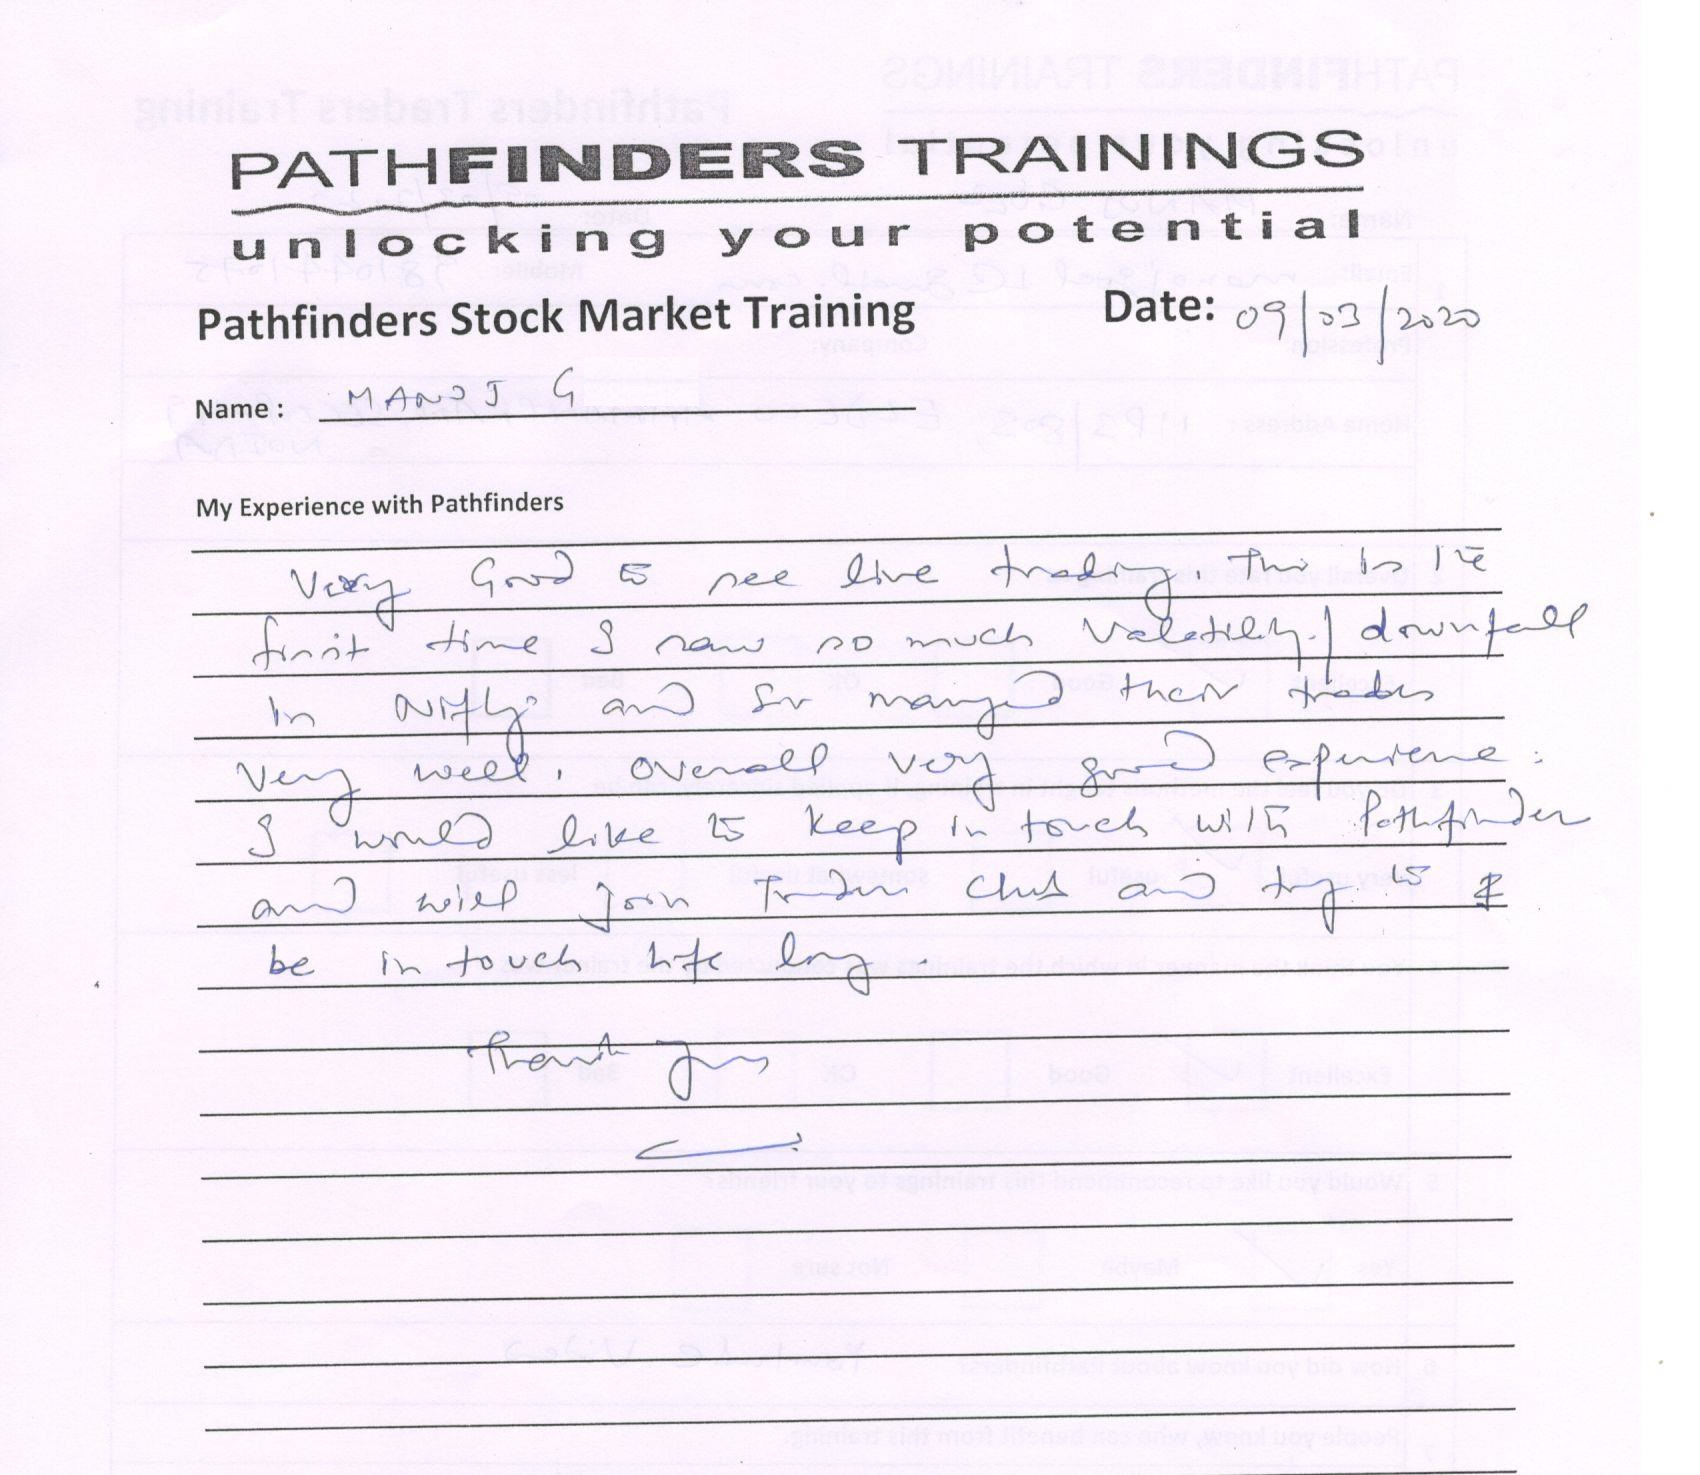 PATHFINDERS TRAININGS
unlocking your potential
Pathfinders Stock Market Training Date: 09/03/2020
Name: MANOJ G
My Experience with Pathfinders
Very Good to see live trading. This is the
first time I saw so much Volatility / downfall
in Nifty and Sir managed their trades
very well. Overall very good experience.
I would like to keep in touch with Pathfinder
and will join Traders club and try to
be in touch life long.
Thank You